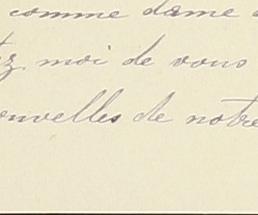 comme dame
ez moi de vous
ouvelles de notre